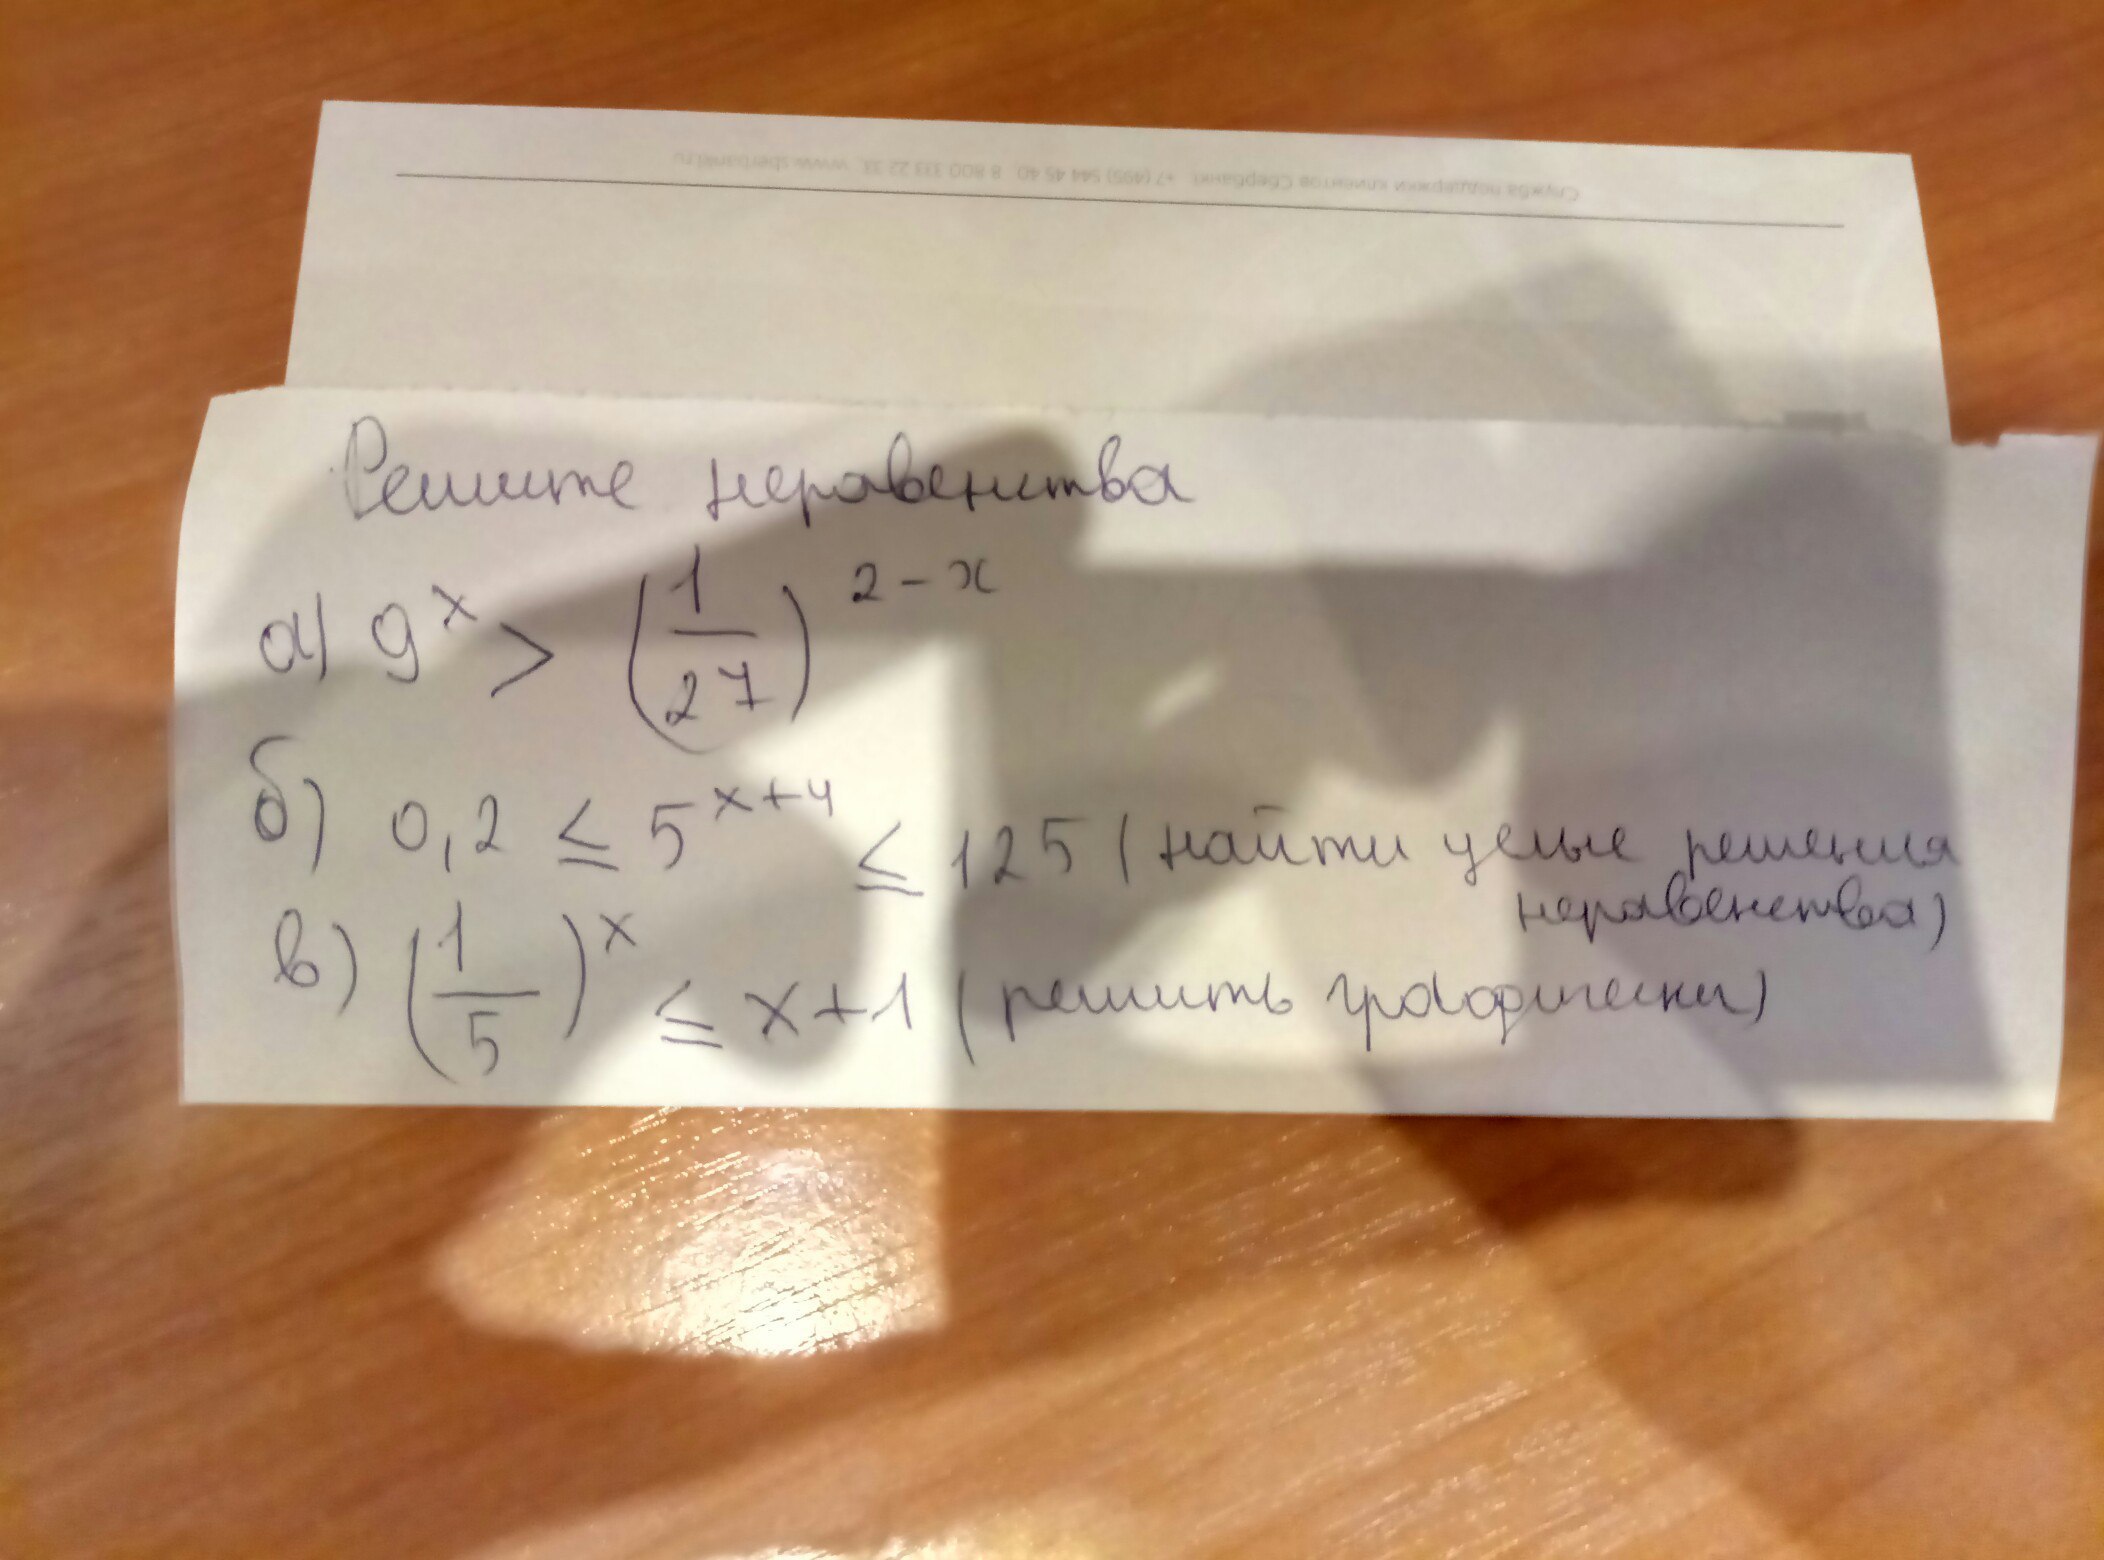 Служба поддержки клиентов Сбербанк: +7 (495) 544 45 40, 8 800 333 22 33, www.sberbank1.ru
Решите неравенства
а) 9^x > (1/27)^(2-x)
б) 0,2 ≤ 5^(x+4) ≤ 125 (найти целые решения
неравенства)
в) (1/5)^x ≤ x+1 (решить графически)